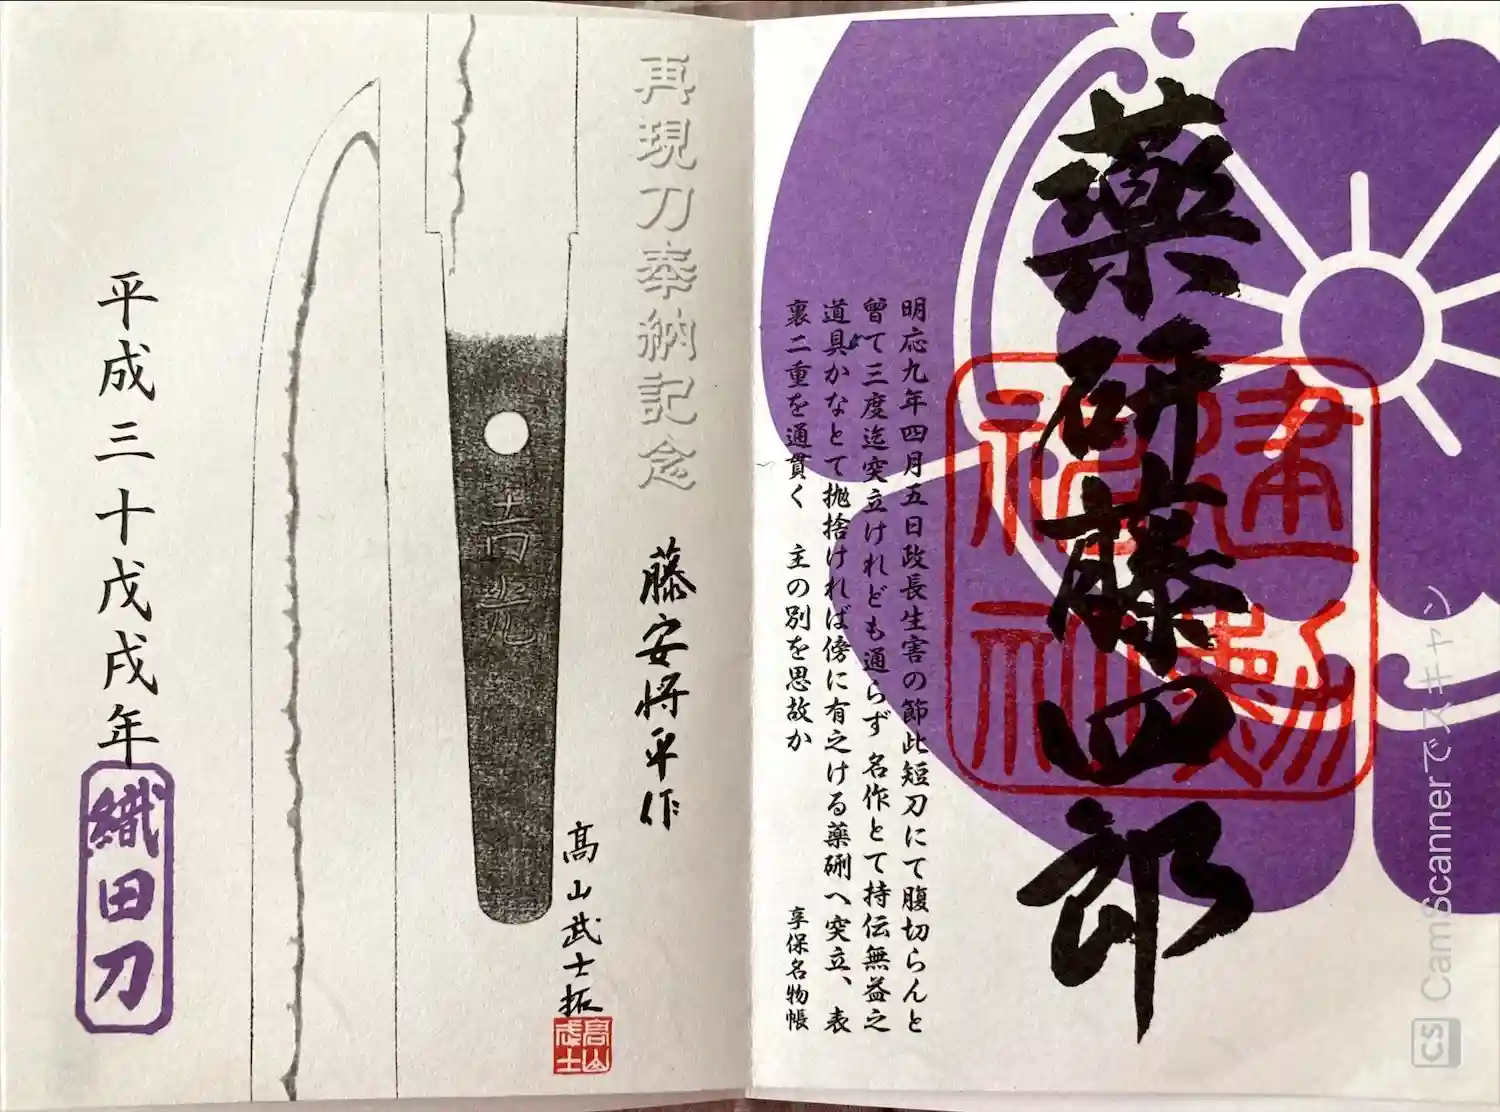 薬研藤四郎
建勲神社
明応九年四月五日政長生害の節此短刀にて腹切らんと
曾て三度迄突立けれども通らず 名作とて持伝無益之
道具かなとて抛捨ければ傍に有之ける薬研へ突立、表
裏二重を通貫く 主の別を思故か
享保名物帳
再現刀奉納記念
藤安将平作
髙山武士拓
髙山武士
吉光
平成三十戊戌年
織田刀
CS CamScannerでスキャン